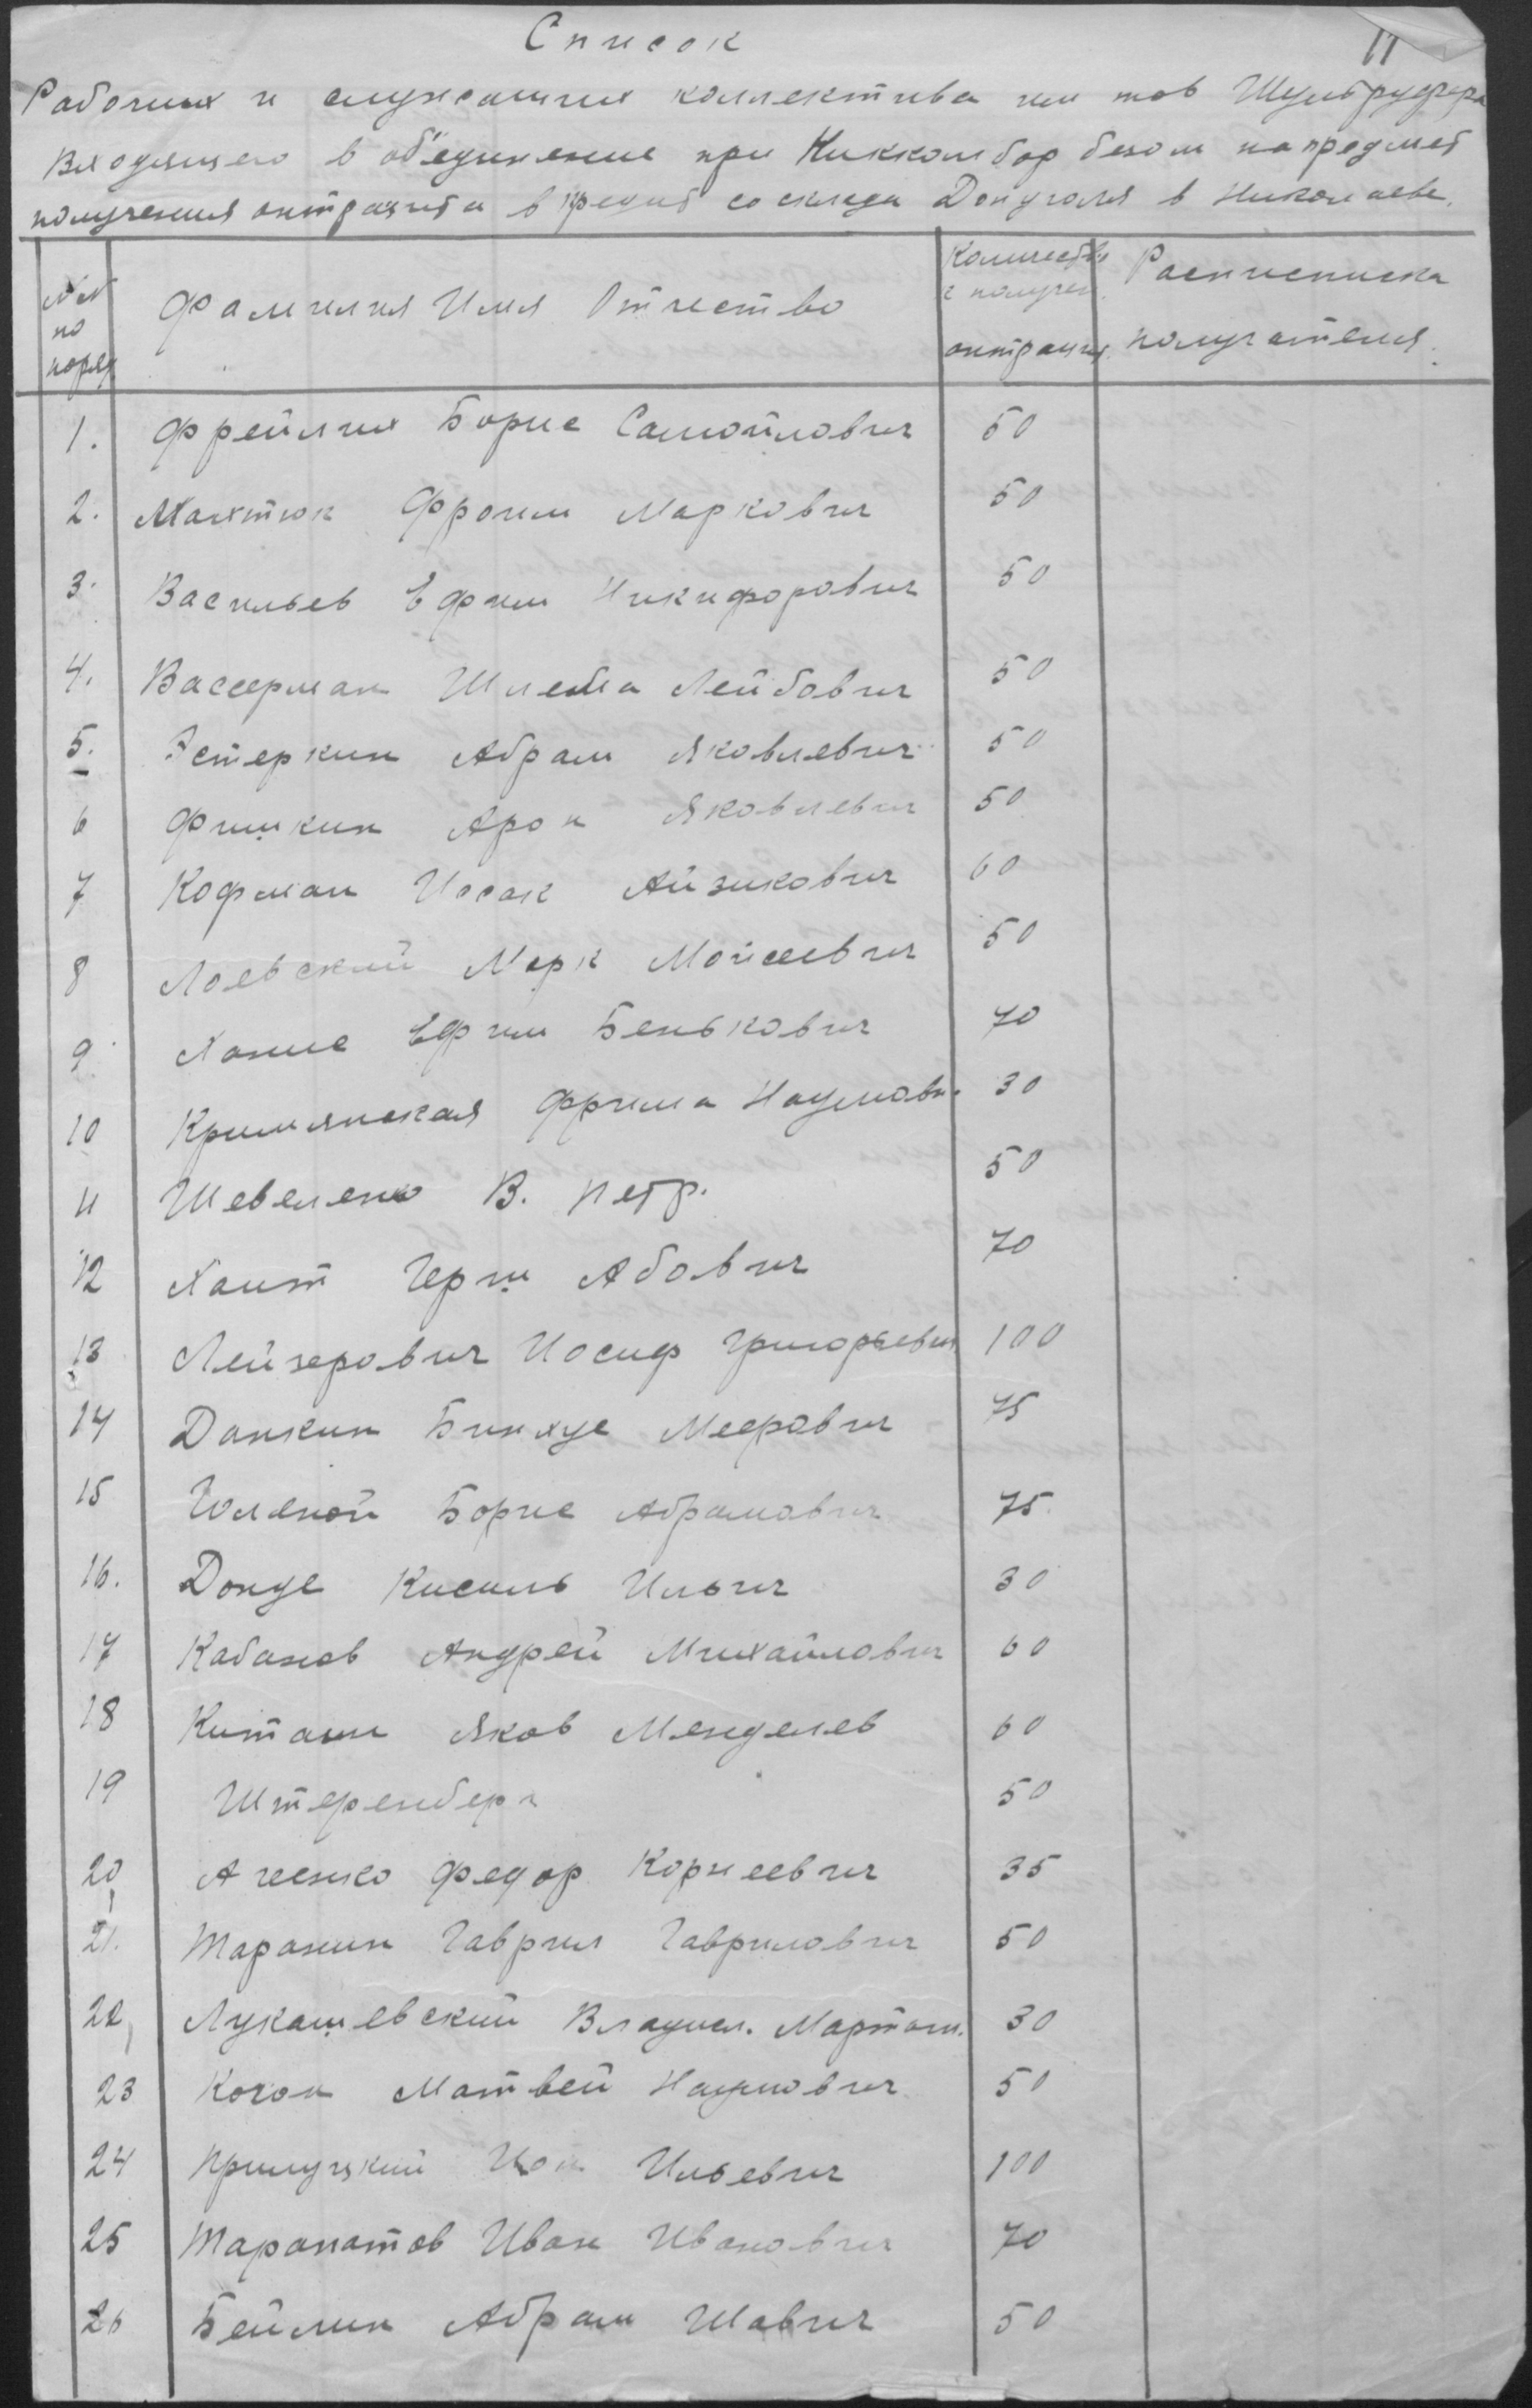 11
Список
Рабочих и служащих коллектива им тов
Входящего в об'единение при безом на предмет
получения антрацита в кредит со склада Донугля в Николаеве.
№№ по поряд
Фамилия Имя Отчество
Количество получен. антрацит.
Расписписка получателя.
1. Фрейлих Борис Самойлович 50
2. Махтюк Фроим Маркович 50
3. Васильев Ефим Никифорович 50
4. Вассерман Шлема Лейбович 50
5. Эстеркин Абрам Яковлевич 50
6 Фишкин Арон Яковлевич 50
7 Кофман Исак Айзикович 60
8 Лоевский Марк Моисеевич 50
9. Ефим Бенькович 70
10 Кримянская Фрима Наумовн. 30
11 Шевеленко В. Петр. 50
12 Хаит Герш Абович 70
13 Лейзерович Иосиф Григорьевич 100
14 Данкин Бинхус Меерович 75
15 Борис Абрамович 75
16. Донде Кисиль Ильич 30
17 Кабанов Андрей Михайлович 60
18 Китаин Яков Менделев 60
19 Штеренберг 50
20 Федор Корнеевич 35
21. Таранин Гаврил Гаврилович 50
22 Лукашевский Владисл. Мартын. 30
23 Коган Матвей Наумович 50
24 Прилуцкий Ильевич 100
25 Тарапатов Иван Иванович 70
26 Бейлин Абрам Шавич 50